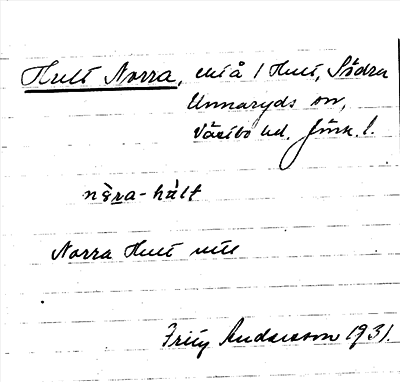 Hult Norra, enl å 1 Hult, Södra
Unnaryds sn,
Västbo hd. Jönk. l.
nära-hält
Norra Hult
Fritz Andersson 1931.